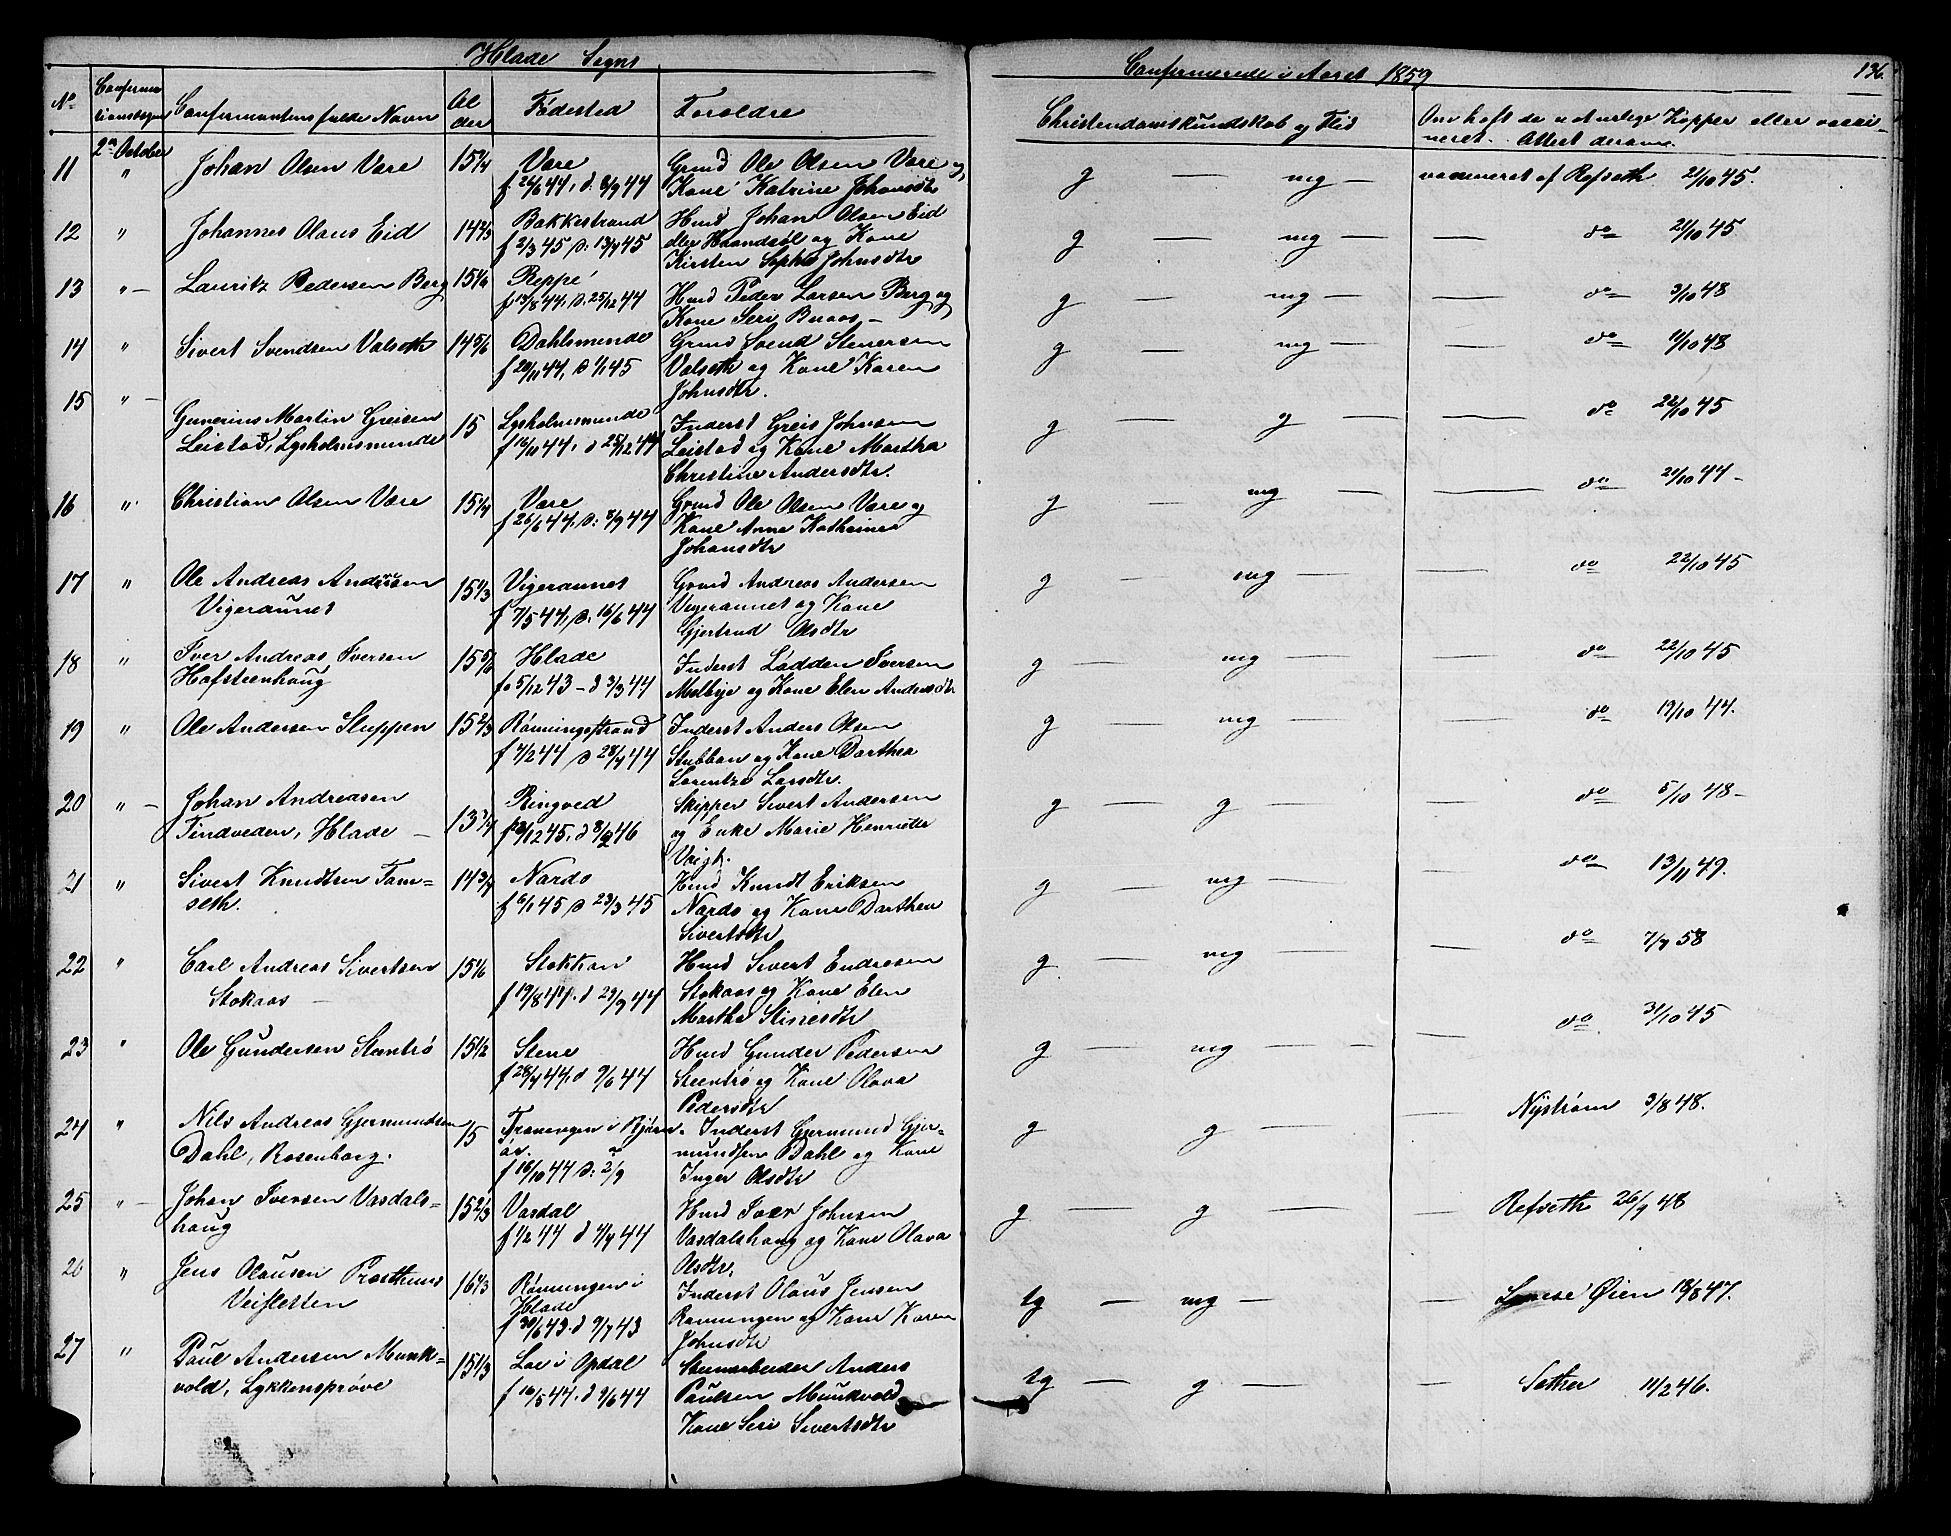 Hlade Sogns
Confirmerede i Aaret 1859
136.
No
Confirma
tionsdagen
Confirmantens fulde Navn
Al
der
Fødested
Foroldre
Christendomskundskab og Flid
Om haft de naturlige Kopper eller vacci-
neret. Attest derom.
2den October
11 " Johan Olsen Være 15 1/4 Være
f 26/6 44, d: 8/9 44
Grmd Ole Olsen Være og
Kone Katrine Johansdtr
g — mg — vaccineret af Refseth 21/10 45.
12 " Johannes Olaus Eid 14 2/3 Bakkestrand
f 2/3 45 d: 13/4 45
Hmd Johan Olsen Eid
eller Haandsøl og Kone
Kirsten Sophie Johnsdtr
g — mg — — do 21/10 45.
13 " — Lauritz Pedersen Berg 15 1/6 Reppe
f 13/8 44, d: 25/12 44
Hmd Peder Larsen Berg og
Kone Seri Buaas —
g — mg — — do 3/10 48
14 " Sivert Svendsen Valseth 14 5/6 Dahlsminde
f 20/11 44, d 1/1 45
Grmd Svend Stenersen
Valseth og Kone Karen
Johnsdtr.
g — mg — — do 9/10 48
15 " — Gunerius Martin Greisen
Leistad, Lysholmsminde
15 Lysholmsminde
f 16/11 44, d 25/12 44
Inderst Greis Johnsen
Leistad og Kone Martha
Christine Andersdtr.
g — g — — do 22/10 45
16 " Christian Olsen Være 15 1/4 Være
f 26/6 44, d: 8/9 44
Grmd Ole Olsen Være og
Kone Anne Kathrina
Johansdtr
g — mg — — do 21/10 44 -
17 " Ole Andreas Andersen
Vigeraunet
15 1/3 Vigeraunet
f 7/5 44, d. 16/6 44
Grmd Andreas Andersen
Vigeraunet og Kone
Gjertrud Olsdtr
g — mg — — do 22/10 45
18 " Iver Andreas Iversen
Hafstenhaug
15 5/6 Hlade
f. 5/12 43 - d 3/3 44
Inderst Ladden Iversen
Melbye og Kone Elen Andersdtr
g — mg — — do 22/10 45
19 " Ole Andersen Sluppen 15 2/3 Rønningsstrand
f 7/2 44 d 28/4 44
Inderst Anders Olsen
Stubban og Kone Darthea
Lorentze Larsdtr.
g — mg — — do 19/10 44.
20 " — Johan Andreasen
Tindveden, Hlade —
13 3/4 Ringved
f 18/12 45, d 8/2 46
Skipper Sivert Andersen
og Enke Marie Henriette
Voigt.
g — g — — do 5/10 48 -
21 " Sivert Knudtsen Tam=
seth.
14 3/4 Nardo
f 6/1 45 d 23/3 45
Hmd Knudt Eriksen
Nardo og Kone Darthea
Sivertsdtr
g — mg — — do 13/11 49.
22 " Carl Andreas Sivertsen
Stokaas —
15 1/6 Stokkan
f 19/8 44. d 29/9 44
Hmd Sivert Endresen
Stokaas og Kone Elen
Martha Stinesdtr
g — mg — — do 7/7 58
23 " Ole Gundersen Steentrø 15 1/2 Stene
f 28/4 44, d 9/6 44
Hmd Gunder Pedersen
Steentrø og Kone Olava
Pedersdtr
g — mg — — do 31/10 45
24 " Nils Andreas Gjermundsen
Dahl, Rosenborg.
15 Tranevgen i Bjørn-
ør.
f 16/10 44 d: 2/9
Inderst Gjermund Gjer=
mundsen Dahl og Kone
Inger Olsdtr
g — g — — Nystrøm 3/8 48.
25 " — Johan Iversen Vasdals=
haug
15 2/3 Vasdal
f 1/2 44 d 4/4 44
Hmd Iver Johnsen
Vasdalshaug og Kone Olava
Olsdtr.
g — g — — Refseth 26/9 48
26 " Jens Olausen Prosthus
Veisletten
16 1/3 Rønningen i
Hlade
f 30/6 43. d 9/7 43
Inderst Olaus Jensen
Rønningen og Kone Karen
Johnsdtr
tg — mg — — Øien 18/8 47.
27 " Paul Andersen Munk-
vold, Lykkensprøve
15 1/3 Loe i Opdal
f 16/5 44, d 9/6 44
Steenarbeider Anders
Paulsen Munkvold
Kone Seri Sivertsdtr
tg — g — — Sather 11/2 46.